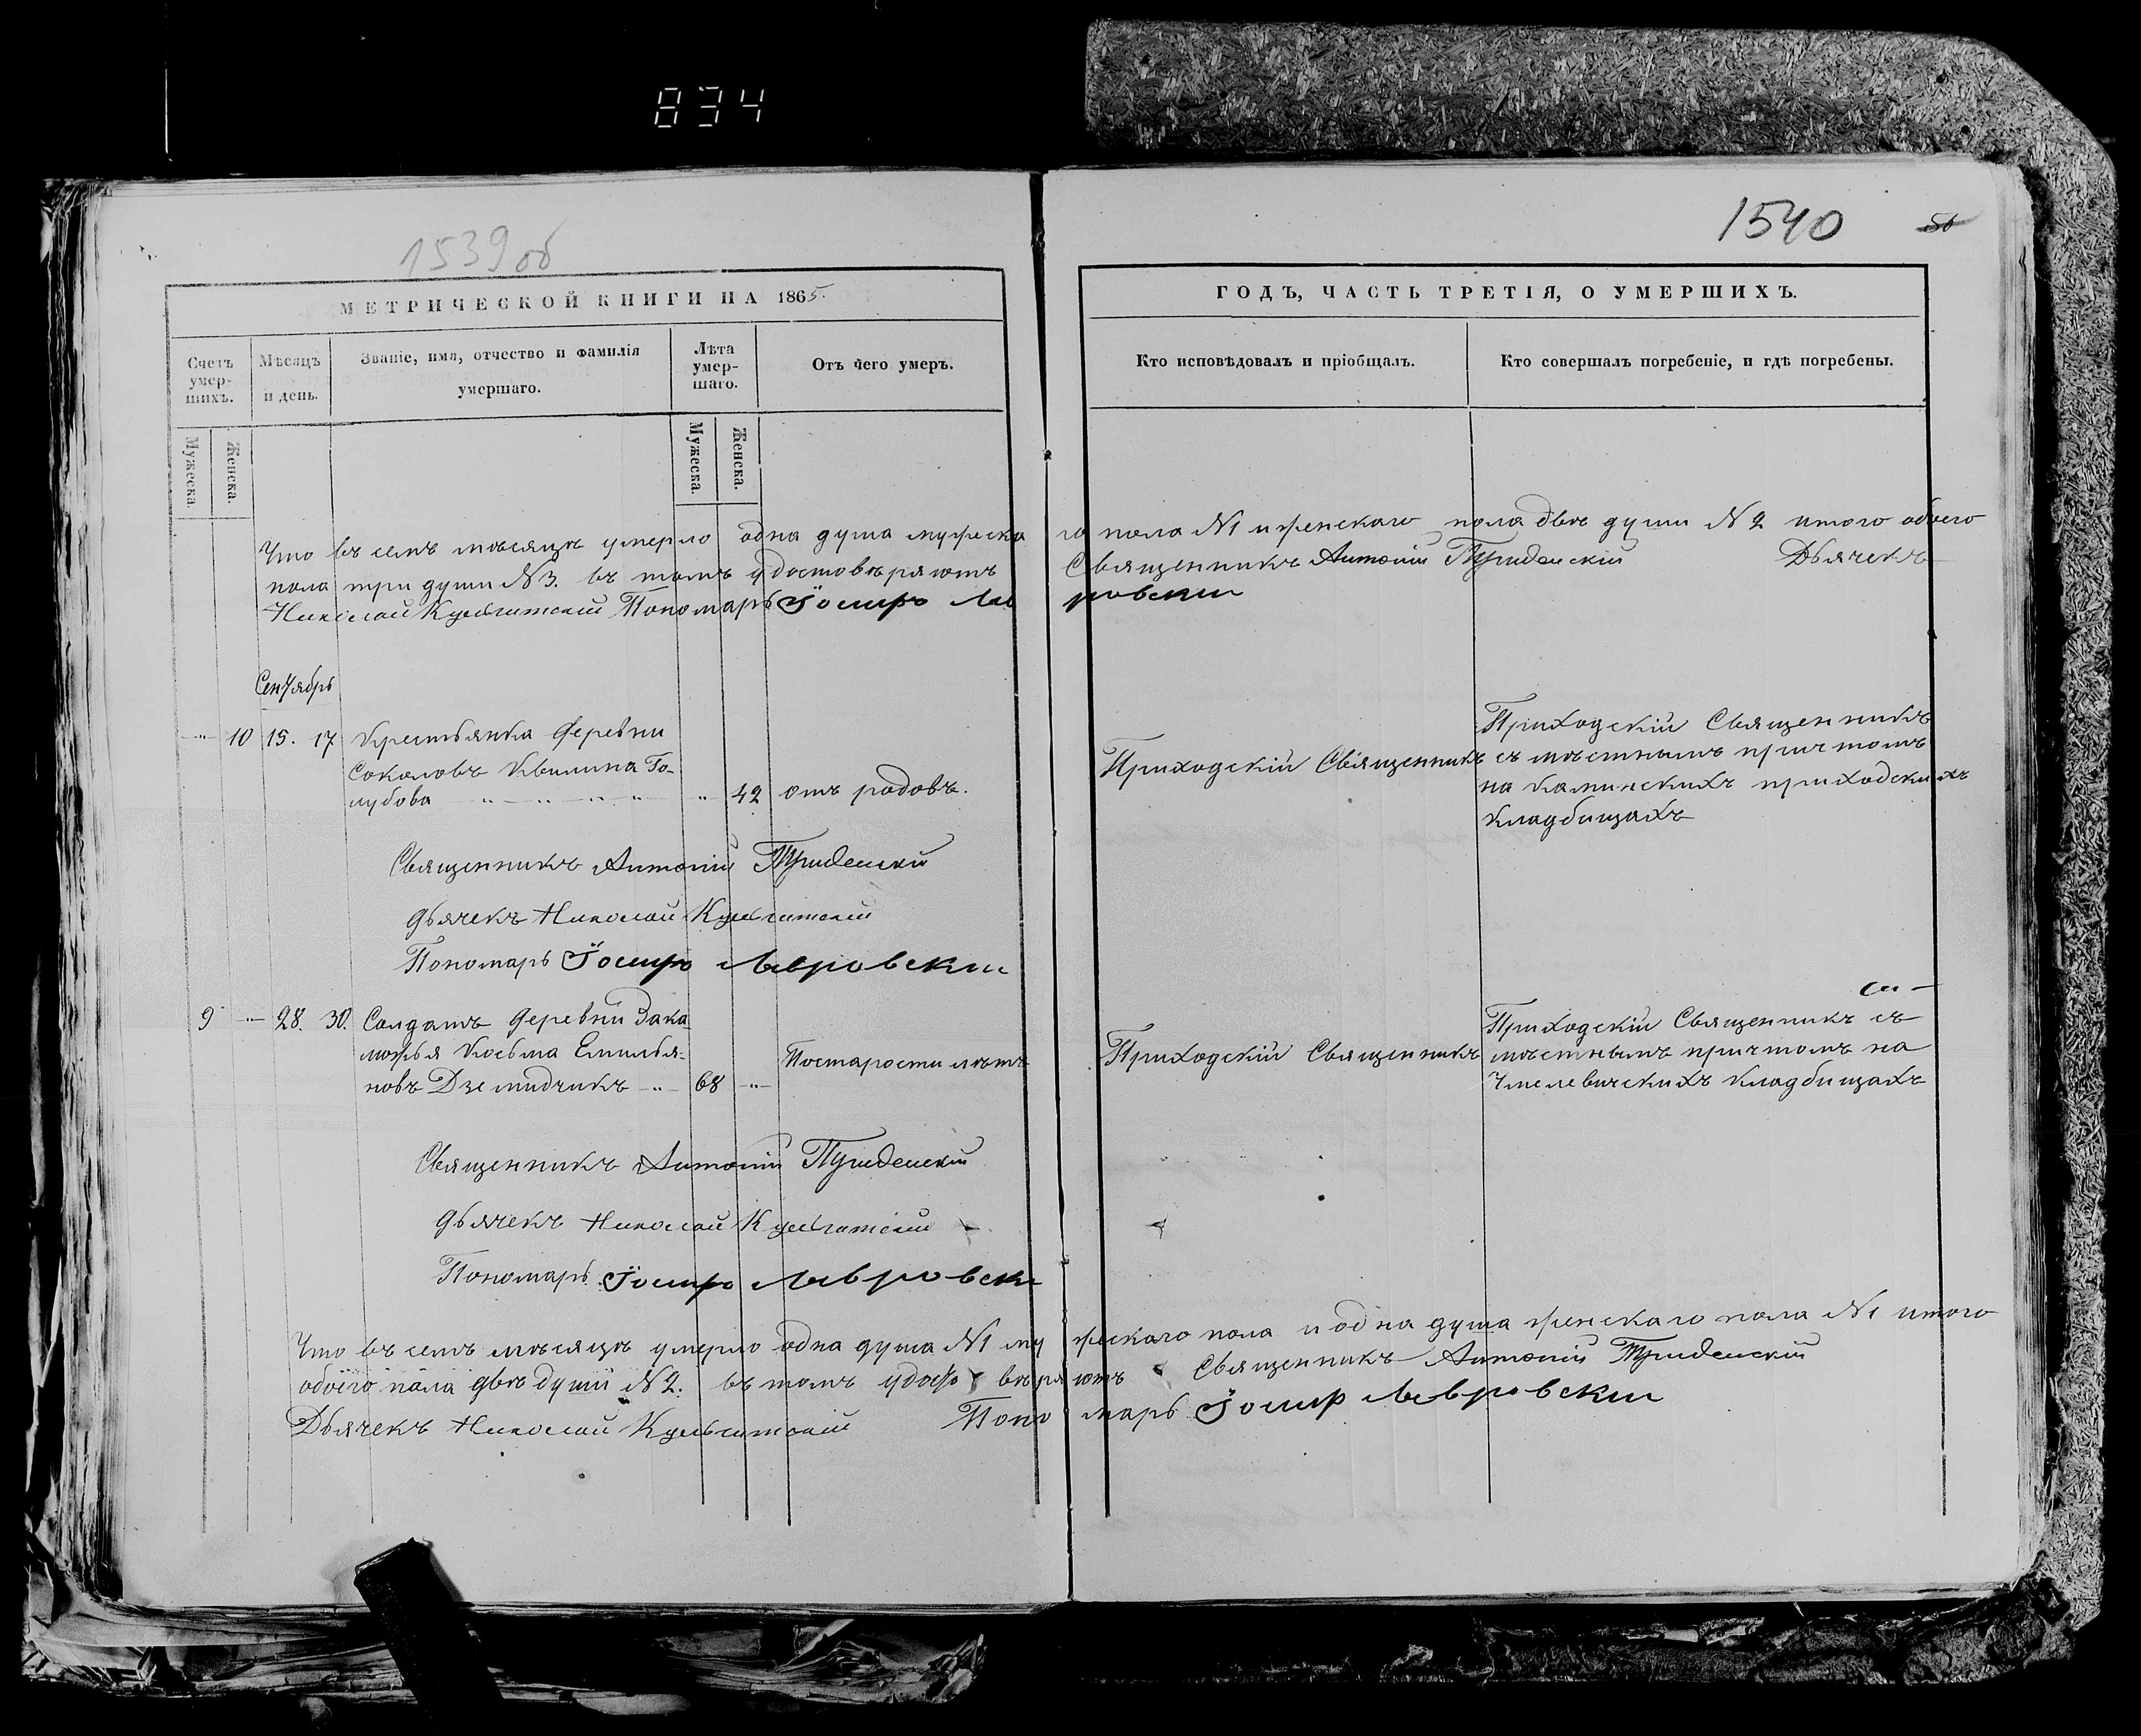 834
1539об
1540
МЕТРИЧЕСКОЙ КНИГИ НА 1865.
ГОДЪ, ЧАСТЬ ТРЕТІЯ, О УМЕРШИХЪ.
Счетъ умер-шихъ.
Мѣсяцъ и день.
Званіе, имя, отчество и фамилія умершаго.
Лѣта умер-шаго.
Отъ чего умеръ.
Кто исповѣдовалъ и пріобщалъ.
Кто совершалъ погребеніе, и гдѣ погребены.
Мужеска.
Женска.
Мужеска.
Женска.
Что въ семъ мѣсяцѣ умерло одна душа мужеска го пола №1 и женскаго пола двѣ души №2 итого обоего
пола три души №3. въ томъ удостовѣряютъ Священникъ Антоній Дьячекъ
Николай Пономарь Іосифъ Лавровскій
Сентябрь
" 10 15. 17 Крестьянка деревни
Соколовъ Квилина Го-
лубова " 42 отъ родовъ.
Приходскій Священникъ
Приходскій Священникъ
съ мѣстнымъ причтомъ
на Каминскихъ приходскихъ
кладбищахъ
Священникъ Антоній
дьячекъ Николай
Пономарь Іосифъ Лавровскій
9 " 28. 30. Солдатъ деревни Зака
можья Косьма Емилья-
новъ Дземидчикъ " 68 "
По старости лѣтъ
Приходскій Священникъ
Приходскій Священникъ съ
мѣстнымъ причтомъ на
Чмелевическихъ кладбищахъ
Священникъ Антоній
дьячекъ Николай
Пономарь Іосифъ Лавровскі
Что въ семъ мѣсяцѣ умерло одна душа №1 му жескаго пола и одна душа женскаго пола №1 итого
обоего пола двѣ души №2. въ томъ удосто вѣряютъ Священникъ Антоній
Дьячекъ Николай Пономарь Іосиф Лавровскій